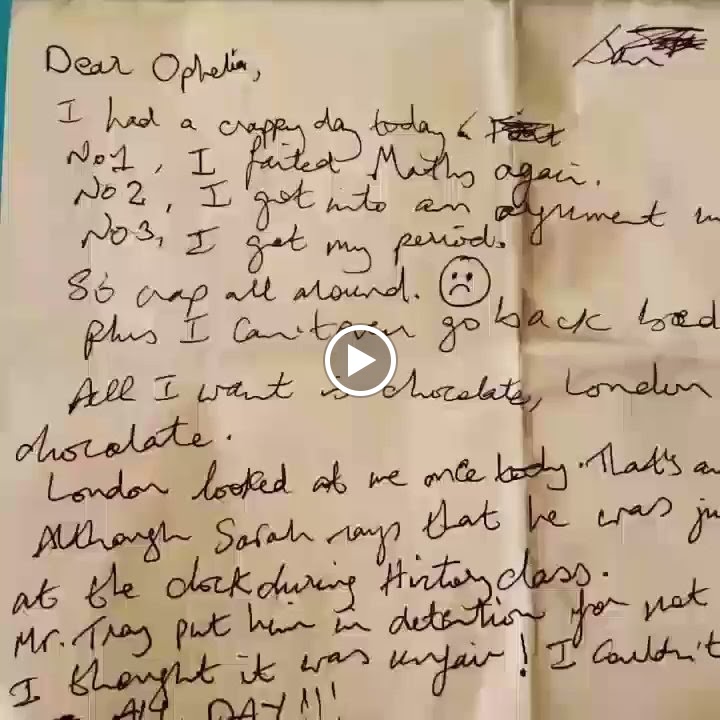 Dear Ophelia,
I had a crappy day today
No1, I failed Maths again.
No2, I got into an argument
No3, I got my period.
So crap all around.
plus I can't even go back
All I want is chocolate, London
chocolate.
London looked at me once today. That's
Although Sarah says that he was
at the clock during History class.
Mr. Tray put him in detention for not
I thought it was unfair! I couldn't
DAY!!!